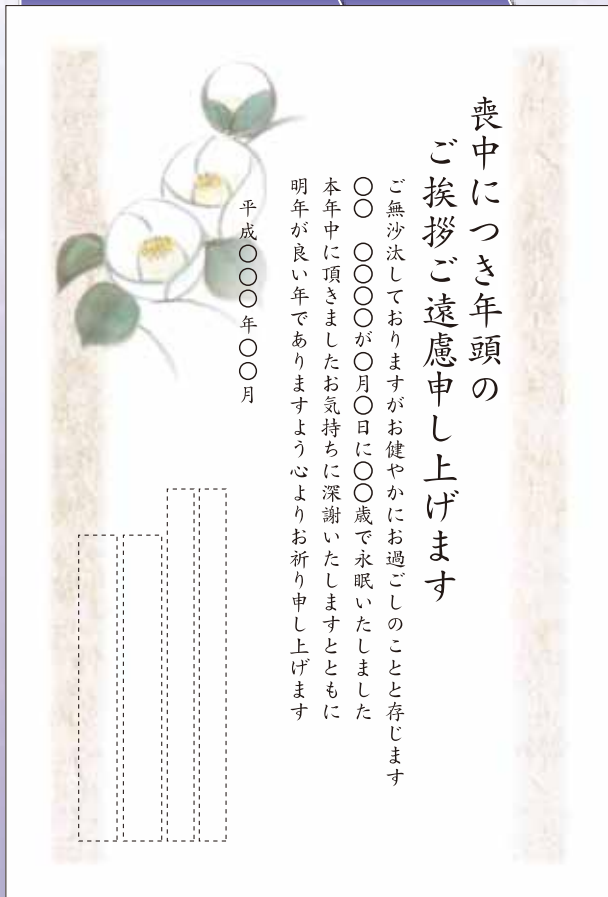 喪中につき年頭の
ご挨拶ご遠慮申し上げます
ご無沙汰しておりますがお健やかにお過ごしのことと存じます
〇〇　〇〇〇〇が〇月〇日に〇〇歳で永眠いたしました
本年中に頂きましたお気持ちに深謝いたしますとともに
明年が良い年でありますよう心よりお祈り申し上げます
平成〇〇〇年〇〇月